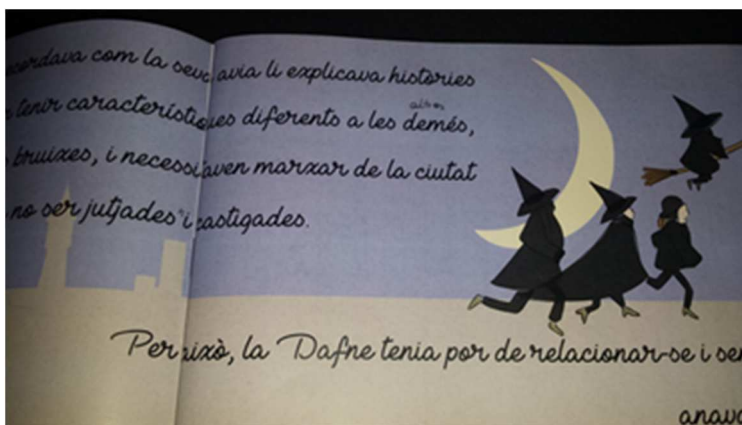 com la seva àvia li explicava històries
tenir característiques diferents a les demés,
bruixes, i necessitaven marxar de la ciutat
no ser jutjades i castigades.
Per això, la Dafne tenia por de relacionar-se i